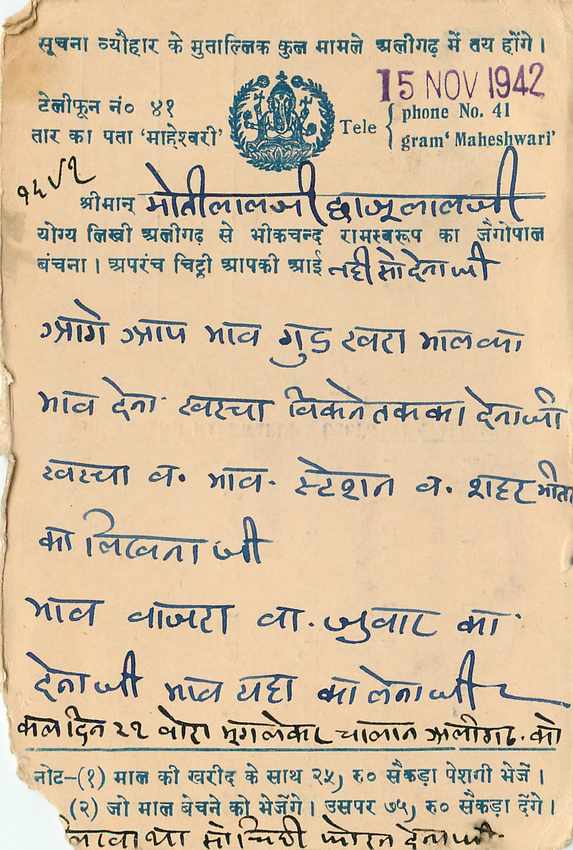 सूचना व्यौहार के मुताल्लिक कुल मामले अलीगढ़ में तय होंगे।
15 NOV 1942
टेलीफून नं० ४१
तार का पता 'माहेश्वरी'
Tele { phone No. 41
gram' Maheshwari'
श्रीमान् मोतीलालजी छाजूलालजी
योग्य लिखी अलीगढ़ से भीकचन्द रामस्वरूप का जैगोपाल
बंचना। अपरंच चिट्ठी आपकी आई नही सो देना जी
आगे आप भाव गुड खरा मालका
भाव देना खरचा विकने तकका देनाजी
खरचा व. भाव. स्टेशन व. शहर भीतर
का लिखना जी
भाव वाजरा वा. जुवार का
देना जी भाव यहा का लेनाजी
कल दिन २२ वोरा मूंग लेकर चालान अलीगढ. को
नोट–(१) माल की खरीद के साथ २५) रु० सैकड़ा पेशगी भेजें।
(२) जो माल बेचने को भेजेंगे। उसपर ७५) रु० सैकड़ा देंगे।
सो चिठी फोरन देना जी